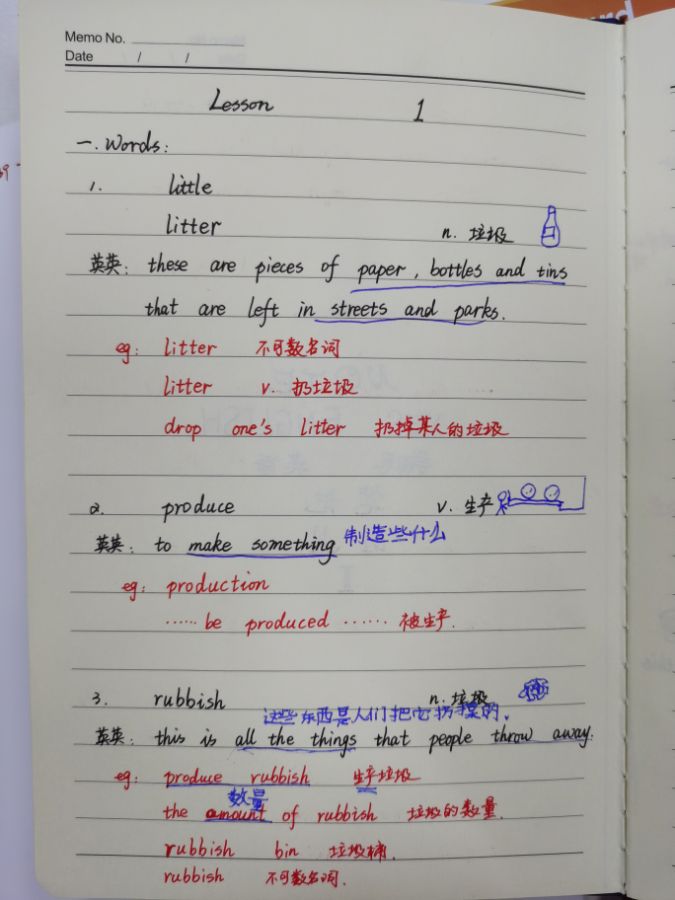 Memo No.
Date / /
Lesson 1
一. Words:
1. little
litter n. 垃圾
英英: these are pieces of paper, bottles and tins
that are left in streets and parks.
eg: litter 不可数名词
litter v. 扔垃圾
drop one's litter 扔掉某人的垃圾
2. produce v. 生产
英英: to make something 制造些什么
eg: production
…… be produced …… 被生产.
3. rubbish n. 垃圾
这些东西是人们把它扔掉的.
英英: this is all the things that people throw away.
eg: produce rubbish 生产垃圾
数量
the amount of rubbish 垃圾的数量.
rubbish bin 垃圾桶.
rubbish 不可数名词.